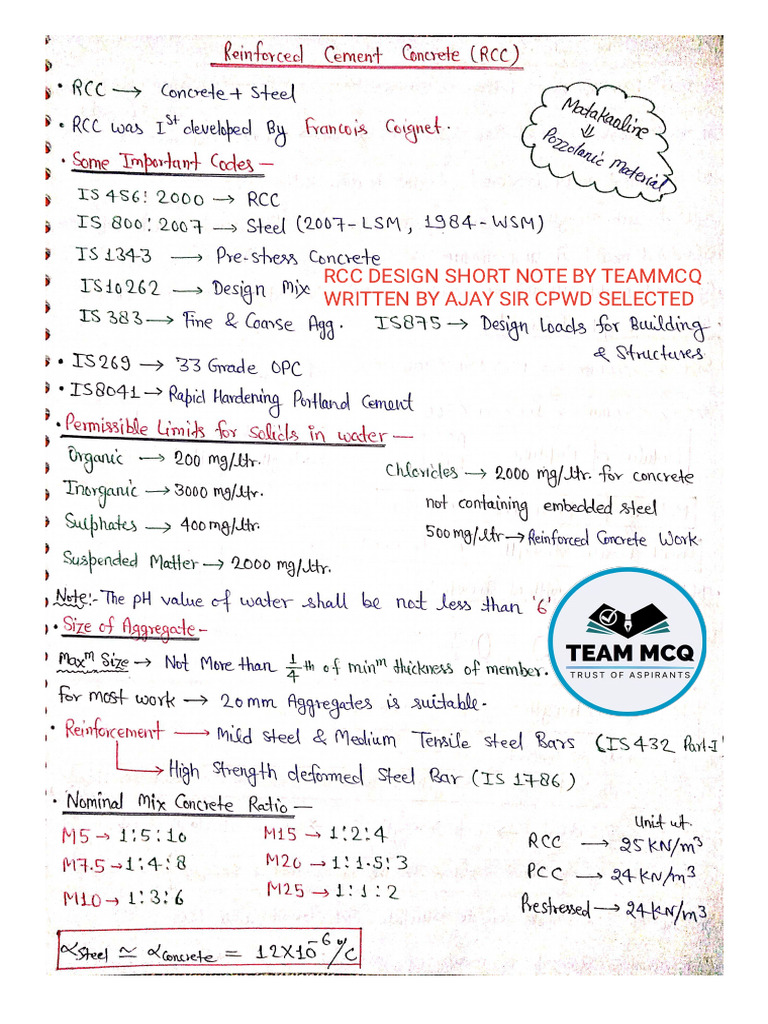 Reinforced Cement Concrete (RCC)
• RCC → Concrete + Steel
• RCC was Iˢᵗ developed By Francois Coignet.
Matakaoline
⇓
Pozzolanic Material
• Some Important Codes –
IS 456: 2000 → RCC
IS 800: 2007 → Steel (2007-LSM, 1984-WSM)
IS 1343 → Pre-stress Concrete
RCC DESIGN SHORT NOTE BY TEAMMCQ
IS10262 → Design Mix
WRITTEN BY AJAY SIR CPWD SELECTED
IS 383 → Fine & Coarse Agg. IS875 → Design Loads for Building
& Structures
• IS269 → 33 Grade OPC
• IS8041 → Rapid Hardening Portland Cement
• Permissible Limits for Solids in water –
Organic → 200 mg/ltr.
Chlorides → 2000 mg/ltr. for concrete
not containing embedded steel
500mg/ltr → Reinforced Concrete Work
Inorganic → 3000 mg/ltr.
Sulphates → 400 mg/ltr.
Suspended Matter → 2000 mg/ltr.
Note:- The pH value of water shall be not less than '6'
• Size of Aggregate –
Maxᵐ Size → Not More than 1/4 th of minᵐ thickness of member.
for most work → 20mm Aggregates is suitable.
TEAM MCQ
TRUST OF ASPIRANTS
• Reinforcement → Mild steel & Medium Tensile steel Bars (IS 432 Part-I
→ High Strength deformed Steel Bar (IS 1786)
• Nominal Mix Concrete Ratio –
M5 → 1:5:10 M15 → 1:2:4
M7.5 → 1:4:8 M20 → 1:1.5:3
M10 → 1:3:6 M25 → 1:1:2
Unit wt.
RCC → 25 KN/m³
PCC → 24 KN/m³
Prestressed → 24 KN/m³
α Steel ≃ α Concrete = 12X10⁻⁶ °/C